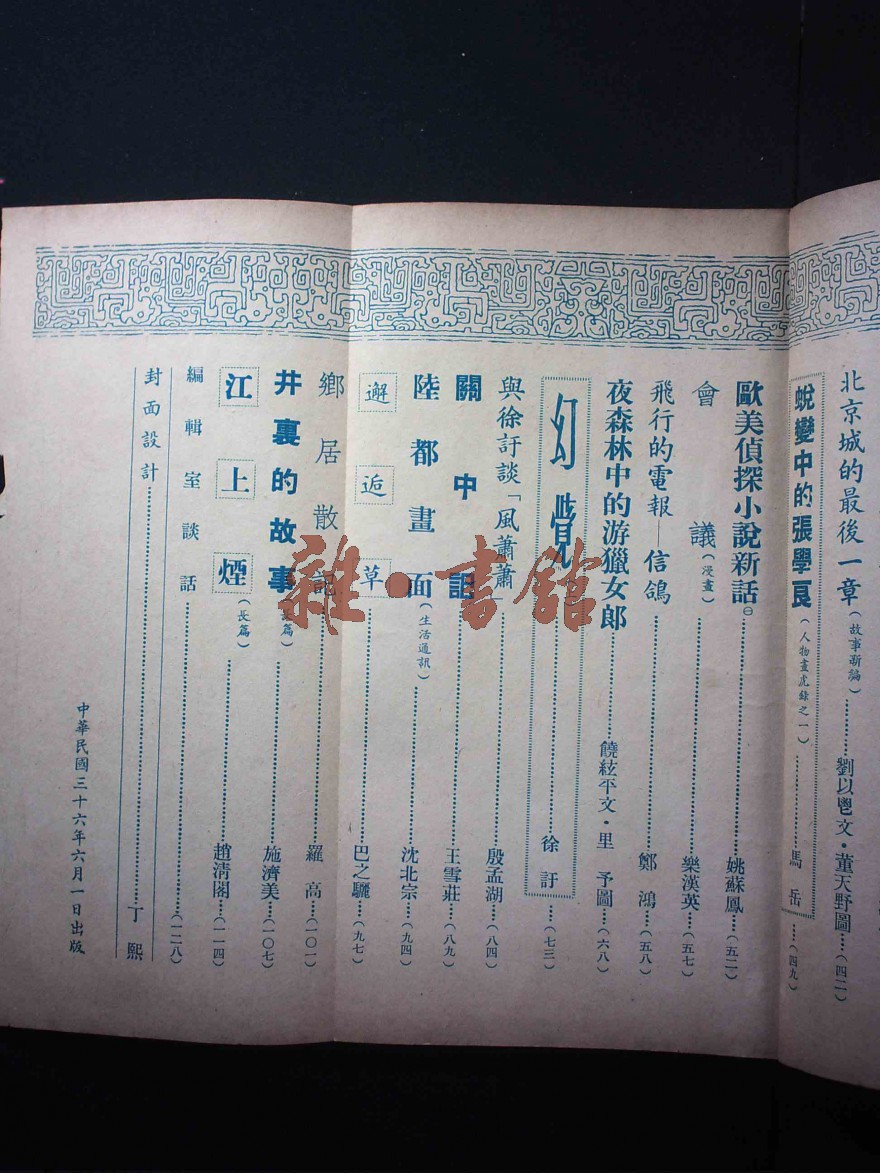 北京城的最後一章(故事新編)……劉以鬯文·董天野圖……(四二)
蛻變中的張學良(人物畫虎錄之一)……馬岳……(四九)
歐美偵探小說新話㊀……姚蘇鳳……(五二)
會議(漫畫)……樂漢英……(五七)
飛行的電報—信鴿……鄭鴻……(五八)
夜森林中的游獵女郎……饒絃平文·里予圖……(六八)
幻覺……徐訏……(七三)
與徐訏談「風蕭蕭」……殷孟湖……(八四)
關中話……王雪莊……(八九)
陸都畫面(生活通訊)……沈北宗……(九四)
邂逅草……巴之驪……(九七)
鄉居散記……羅高……(一〇一)
井裏的故事(長篇)……施濟美……(一〇七)
江上煙(長篇)……趙清閣……(一一四)
編輯室談話……(一二八)
封面設計……丁熙
中華民國三十六年六月一日出版
雜·書館